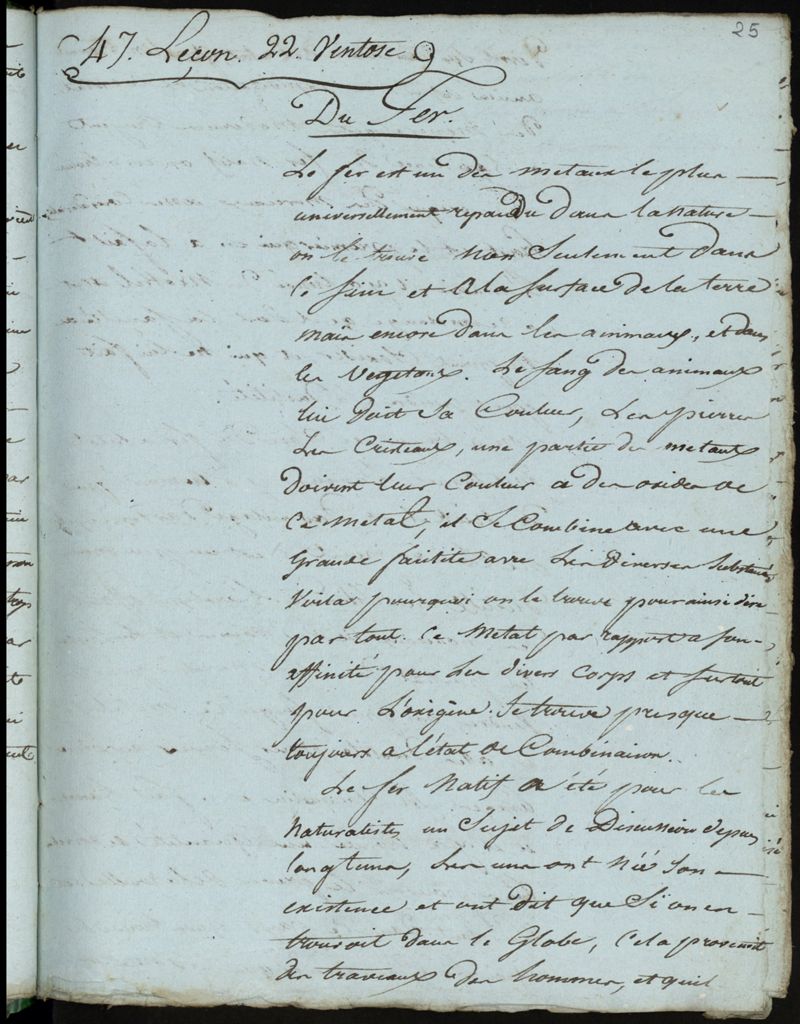 25
47. Leçon. 22 Ventose
Du Fer.
Le fer est un des metaux le plus
universellement repandu dans la nature
on le trouve non Seulement dans
le sein et a la surface de la terre
mais encore dans les animaux, et dans
les vegetaux. Le sang des animaux
lui doit sa Couleur, Les pierres
Les Cristaux, une partie des metaux
doivent leur Couleur a des oxides de
Ce metal, il se Combine avec une
grande facilité avec Les diverses substances
Voila pourquoi on le trouve pour ainsi dire
par tout. Ce Metal par rapport a son
affinité pour Les divers Corps et surtout
pour L'oxigène. se trouve presque
toujours a l'état de Combinaison.
Le fer Natif a été pour les
Naturalistes un Sujet de Discussion depuis
longtems, Les uns ont Nié Son
existence et ont dit que Si on en
trouvoit dans le Globe, Cela provenoit
des traveaux des hommes, et quil